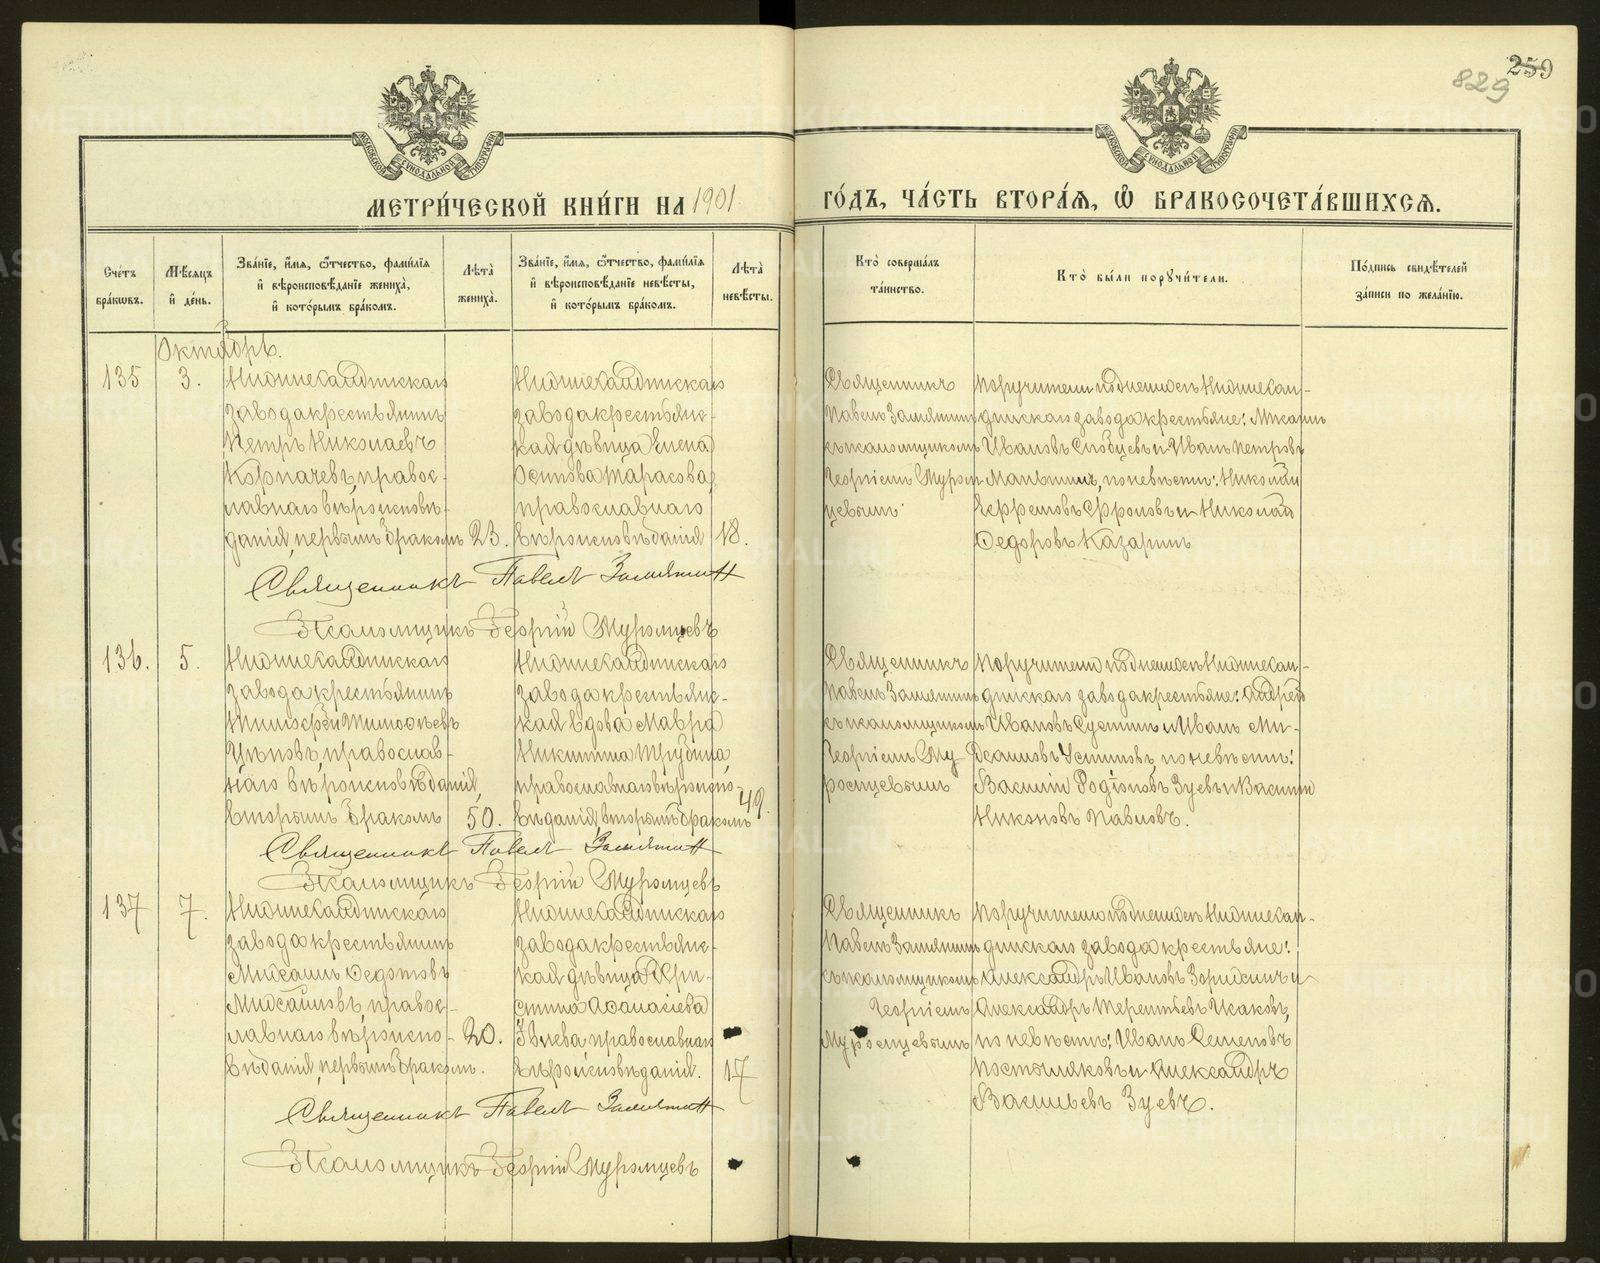 829
259
МЕТРИ́ЧЕСКОЙ КНИ́ГИ НА 1901 ГО́ДЪ, ЧА́СТЬ ВТОРА́Я, Ѽ БРАКОСОЧЕТА́ВШИХСЯ.
Сче́тъ бра́кѡвъ.
Мѣ́сяцъ и҆ де́нь.
Зва́нїе, и҆́мя, ѻ҆́тчество, фами́лїя
и҆ вѣроисповѣ́данїе жениха̀,
и҆ кото́рымъ бра́комъ.
Лѣ́та̀ жениха̀.
Зва́нїе, и҆́мя, ѻ҆́тчество, фами́лїя
и҆ вѣроисповѣ́данїе невѣ́сты,
и҆ кото́рымъ бра́комъ.
Лѣ́та̀ невѣ́сты.
Кто̀ соверша́лъ
та́инство.
Кто̀ бы́ли поручи́тели.
По́дпись свидѣ́телей
за́писи по жела́нїю.
Октябрь.
135
3.
Нижнесалдинскаго
завода крестьянинъ
Петръ Николаевъ
Корпачевъ, правос-
лавнаго вѣроисповѣ-
данія, первымъ бракомъ
23.
Нижнесалдинскаго
завода крестьянс-
кая дѣвица Елена
Осипова Тарасова,
православнаго
вѣроисповѣданія
18.
Священникъ
Павелъ Замятинъ
съ псаломщикомъ
Георгіемъ Муром
цевымъ
Поручители по женихѣ: Нижнесал-
динскаго завода крестьяне:
Ивановъ и Иванъ Петровъ
по невѣстѣ: Николай
Ефремовъ Фроловъ и Николай
Федоровъ Казаринъ
Священникъ Павелъ Замятин
Псаломщикъ Георгій Муромцевъ
136.
5.
Нижнесалдинскаго
завода крестьянинъ
Тимофѣевъ
православ-
наго вѣроисповѣданія,
вторымъ бракомъ
50.
Нижнесалдинскаго
завода крестьянс-
кая вдова Мавра
Никитина Трубина,
православнаго вѣроиспо-
вѣданія, вторымъ бракомъ
49.
Священникъ
Павелъ Замятинъ
съ псаломщикомъ
Георгіемъ Му
ромцевымъ
Нижнесал-
динскаго завода крестьяне: Андрей
Ивановъ и Иванъ
Устиновъ, по невѣстѣ:
Василій Родіоновъ Зуевъ и Василій
Никоновъ Павловъ.
Священникъ Павелъ Замятин
Псаломщикъ Георгій Муромцевъ
137
7.
Нижнесалдинскаго
завода крестьянинъ
Михаилъ Федотовъ
Михайловъ, правос-
лавнаго вѣроиспо-
вѣданія, первымъ бракомъ.
20.
Нижнесалдинскаго
завода крестьянс-
кая дѣвица Хри-
стина Афанасіева
православнаго
вѣроисповѣданія.
17
Священникъ
Павелъ Замятинъ
съ псаломщикомъ
Георгіемъ
Муромцевымъ
Нижнесал-
динскаго завода крестьяне:
Александръ Ивановъ Зорихинъ и
Александръ Терентьевъ Исаковъ,
по невѣстѣ: Иванъ Семеновъ
Постыляковъ и Александръ
Васильевъ Зуевъ.
Священникъ Павелъ Замятин
Псаломщикъ Георгій Муромцевъ